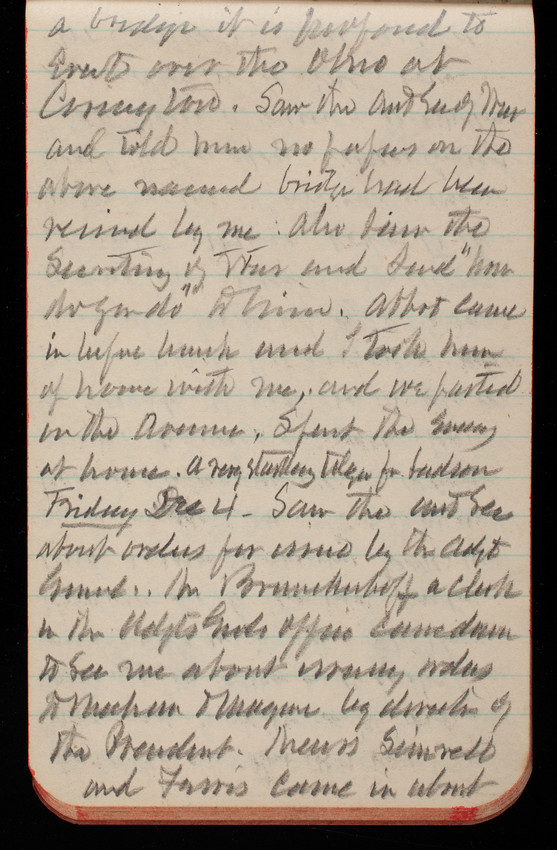 a bridge it is proposed to
Erect over the Ohio at
Covington. Saw the Asst Sec of War
and told him no papers on the
above named bridge had been
received by me. Also saw the
Secretary of War and said "how
do you do" to him. Abbot came
in before lunch and I took him
of home with me, and we parted
in the Avenue. Spent the Evening
at home. A very startling telegm fr Hudson
Friday Dec 4. Saw the asst Sec
about orders for issue by the Adjt
Genrl. Mr a clerk
in the Adjts Genls office came down
to see me about issuing orders
to by direction of
the President. Messrs
and Farris came in about